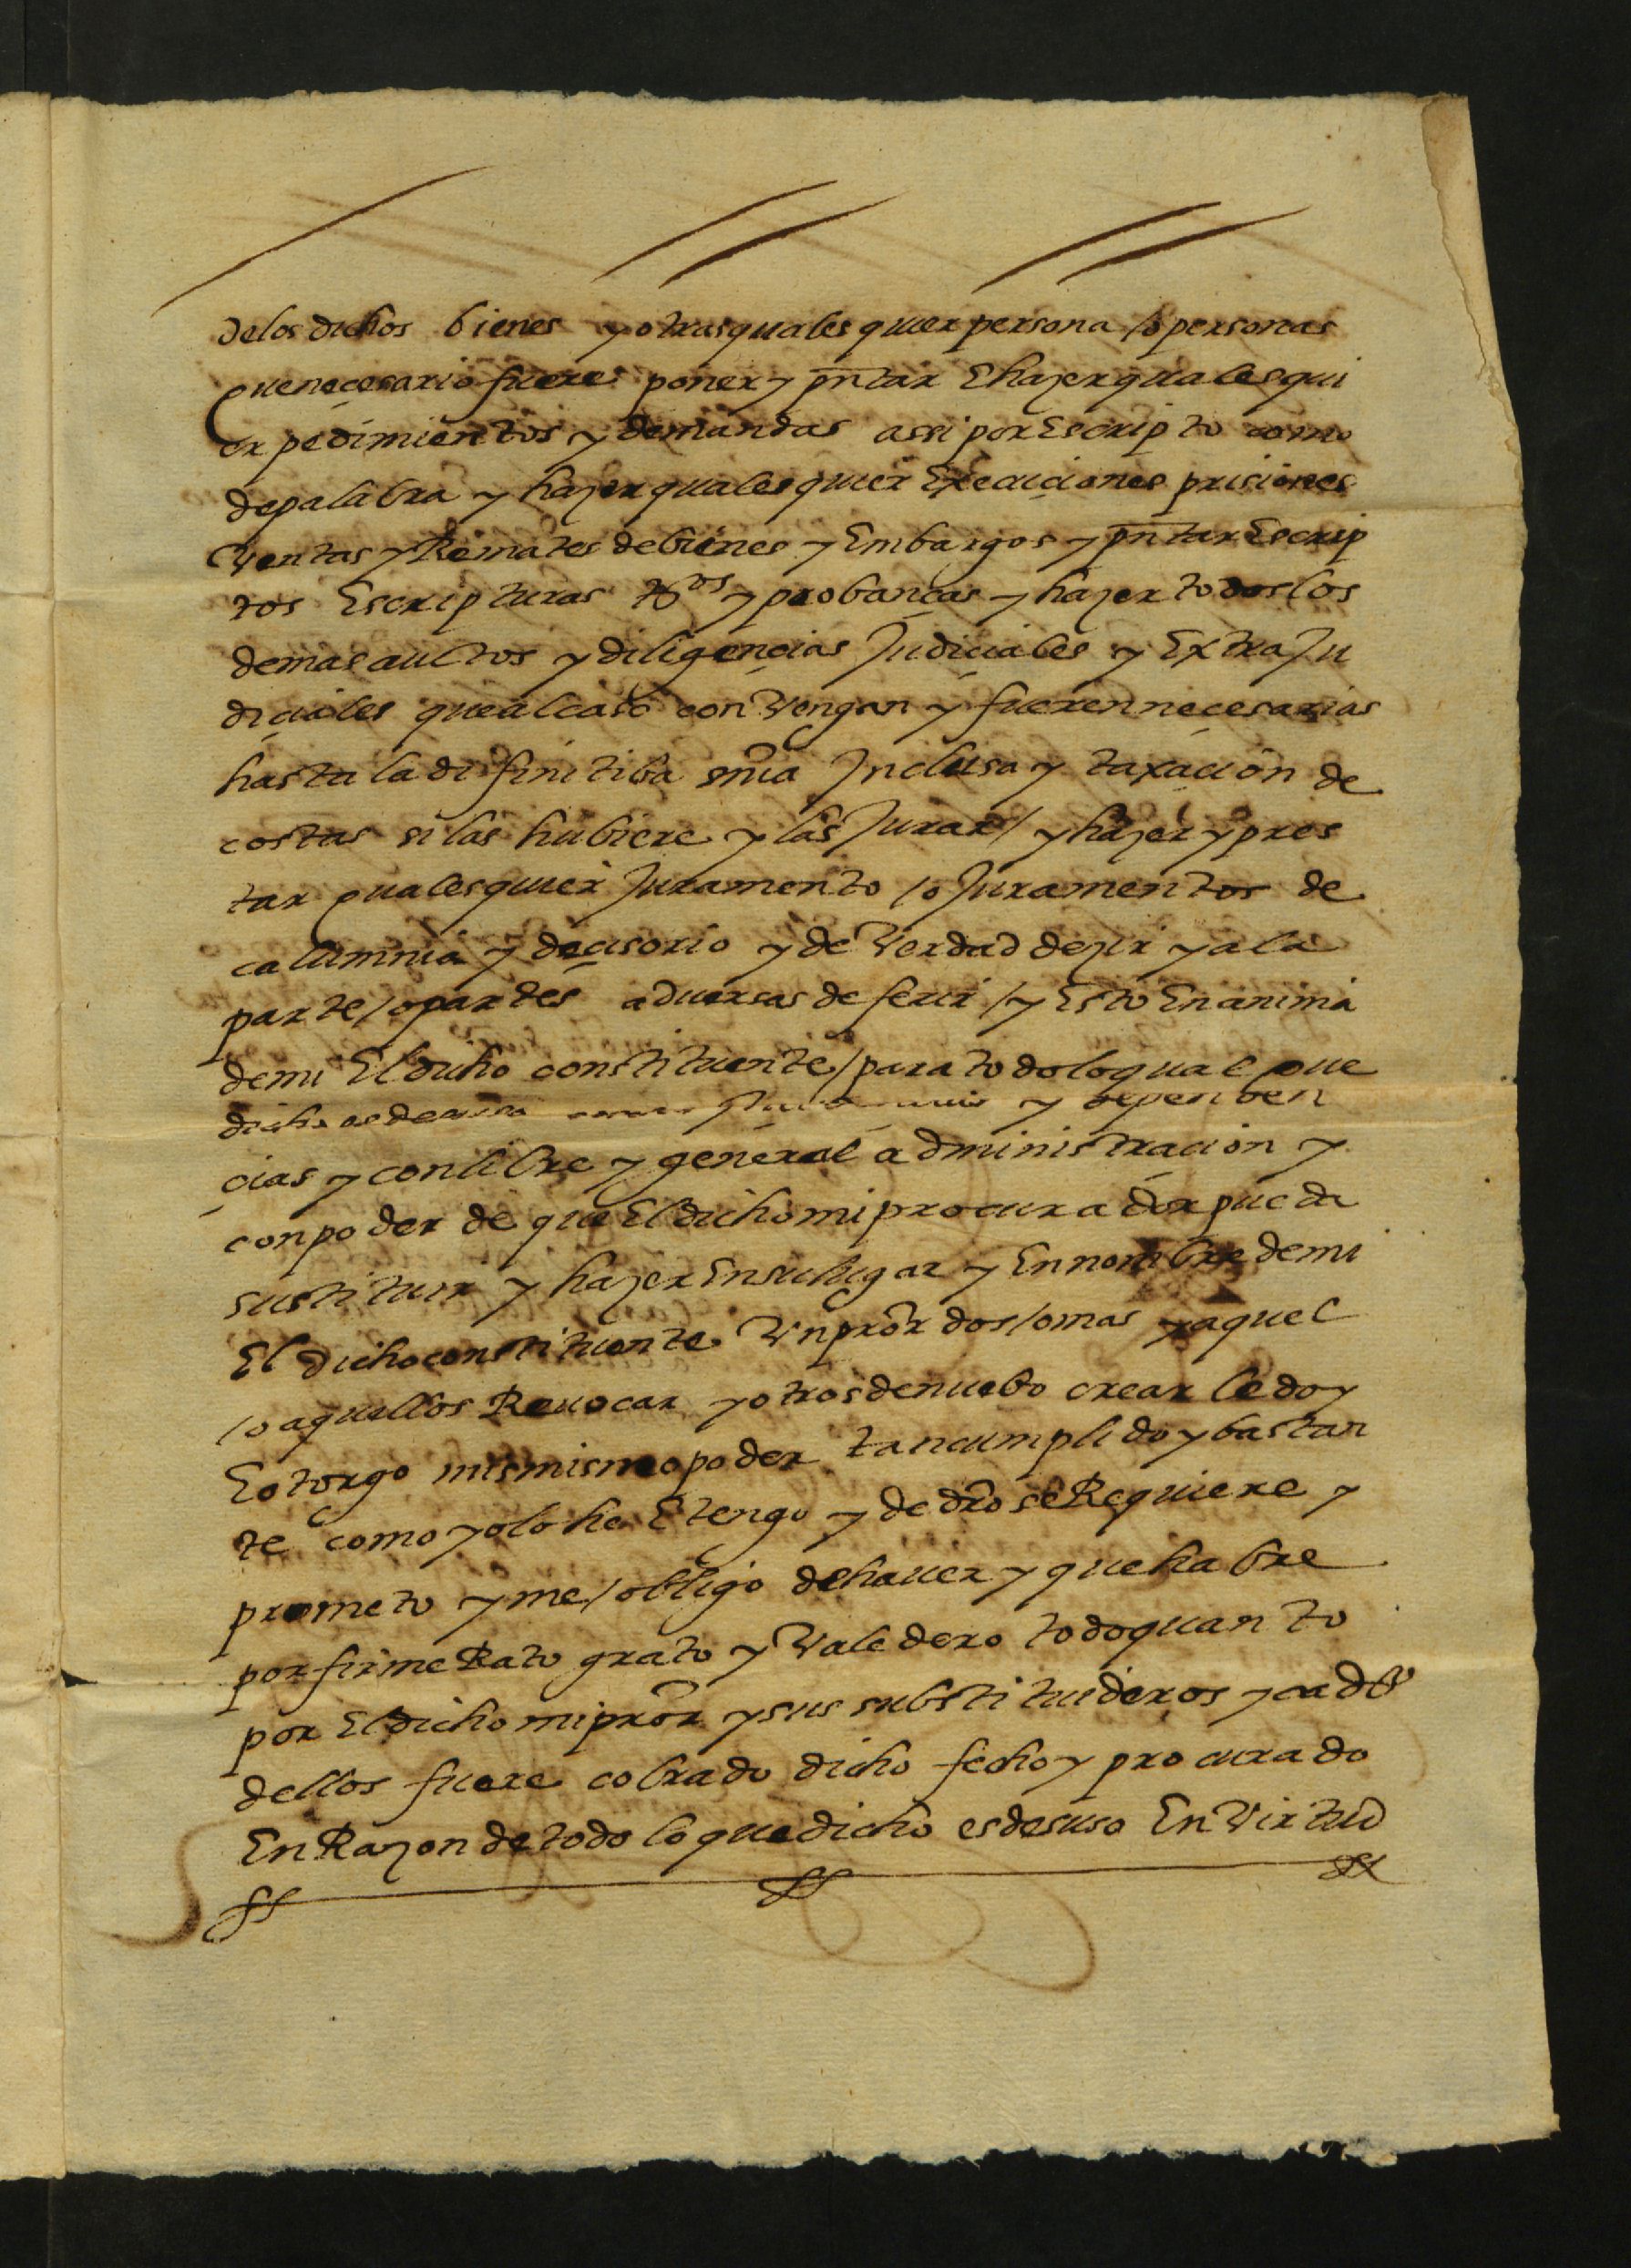 delos dichos bienes y otras quales quier persona /o personas
que neçesario fuere poner y pñtar E hazer quales qui
er pedimientos y demandas assi por Escripto como
de palabra y hazer quales quier Execuciones prisiones
Ventas y Remates de bienes y Embargos y pñtar Escrip
tos Escripturas tgos y probanças y hazer todos los
demas auctos y diligençias Judiçiales y Extra Ju
diçiales que al caso conVengan y fueren neçesarias
hasta la difinitiba snia Inclusa y taxaçion de
costas si las hubiere y las Jurar / y hazer y pres
tar quales quier Juramento /o Juramentos de
calumnia y deçisorio y de Verdad dezir y a la
parte /o partes aduersas deferir / y Esto En anima
de mi El dicho constituente / para todo lo qual que
dicho es de y dependen
çias y con libre y general administraçion y
con poder de que El dicho mi procurador pueda
sustituir y hazer En su lugar y En nombre de mi
El dicho constituente Vn pror dos /o mas y aquel
/o aquellos Reuocar y otros de nuebo crear le doy
E otorgo mi mismo poder tan cumplido y bastan
te como yo lo he E tengo y de dro se Requiere y
prometo y me /obligo de hauer y que habre
por firme Rato grato y Valedero todo quanto
por El dicho mi pror y sus substituideros y cada Vo
dellos fuere cobrado dicho fecho y procurado
En Razon de todo lo que dicho es desuso En Virtud